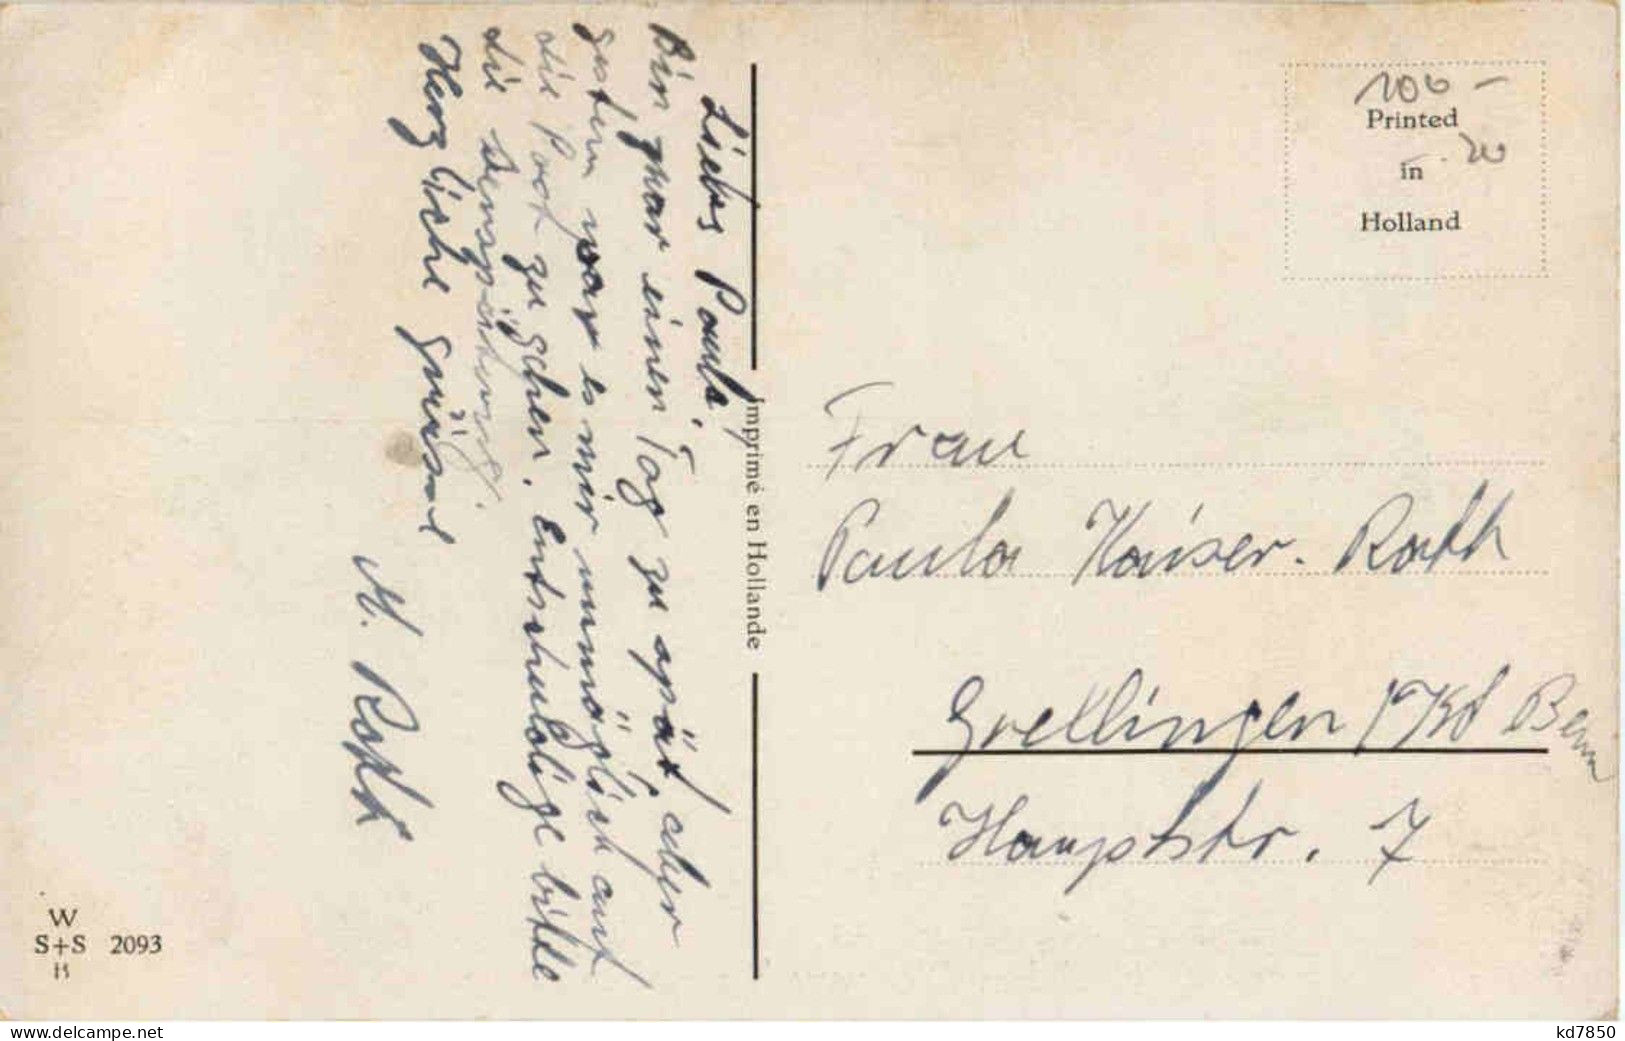 Liebes Paula,
Bin zwar einen Tag zu spät, aber
gestern war es mir unmöglich auf
die Post zu gehen. Entschuldige bitte
die
Herzliche Grüsse
M. Roth
Imprimé en Hollande
100 -
Printed
in
Holland
Frau
Paula Kaiser-Roth
Grellingen / Kt Bern
Hauptstr. 7
W
S+S 2093
B
www.delcampe.net
kd7850